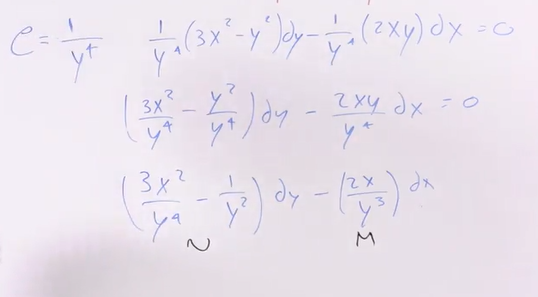 e = 1/y⁴   1/y⁴ (3x² - y²)dy - 1/y⁴ (2xy) dx = 0
(3x²/y⁴ - y²/y⁴) dy - 2xy/y⁴ dx = 0
(3x²/y⁴ - 1/y²) dy - (2x/y³) dx
N   M